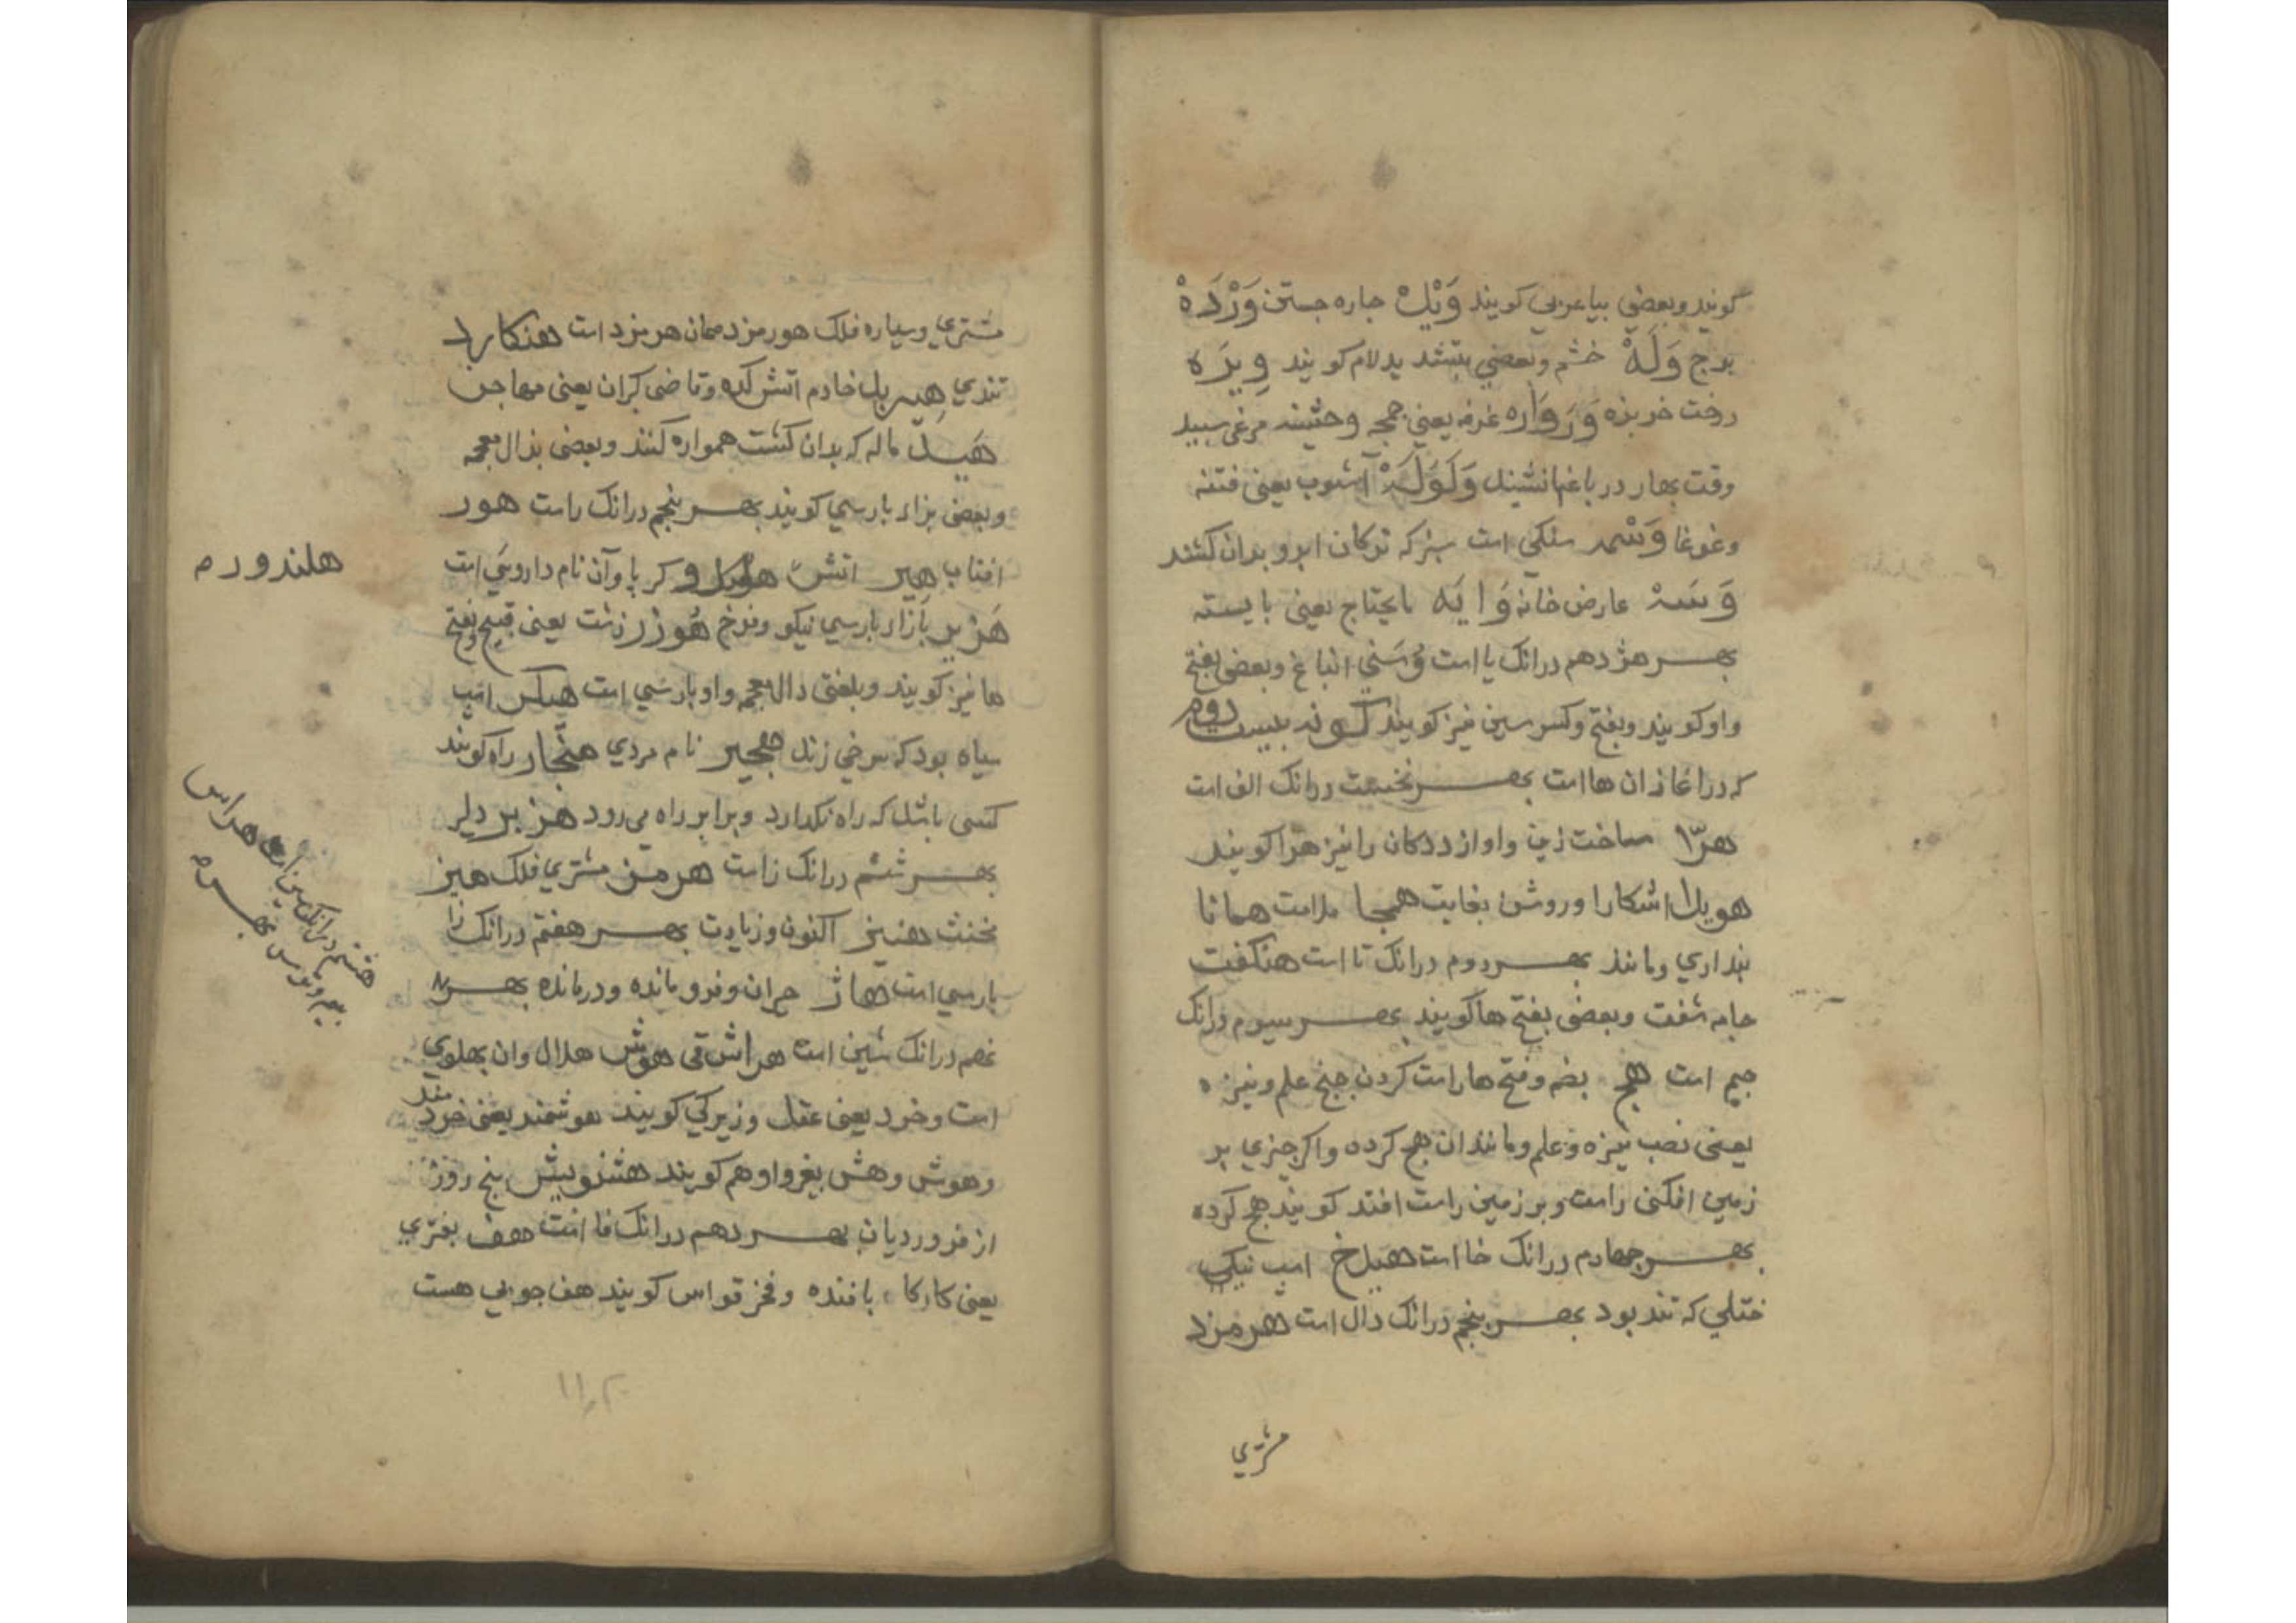 کویند وبعضی بیا عربی کویند وَیْك جاره جستن وَرْدَهْ
برج وَلَهْ خشم وبعضی بتشدید لام کویند وِیرَه
درخت خربزه وَرَوَاره غرفه یعنی جمجه وحشینه مرغی سبید
وقت بهار در باغها نشیند وَلَوَلَهْ آشوب یعنی فتنه
وغوغا وَسْمه سنکی است سبز که ترکان ابرو بدان کشند
وَسَنهْ عارض خانه وَایَه مایحتاج یعنی بایسته
بهر هژدهم درانک یا است وُسَنی انباغ وبعضی بفتح
واو کویند وبفتح وکسر سین نیز کویند کونه بیست دوم
که در اغاز ان ها است بهر نخست درانک الف است
هرّا ساخت زین واواز ددکان را نیز هرّا کویند
هویدا اشکارا وروشن بغایت هیجا ملامت همانا
بنداری ومانند بهر دوم درانک تا است هنکفت
جامه شفت وبعضی بفتح ها کویند بهر سیوم درانک
جیم است هج بضم وفتح ها راست کردن جنح علم ونیزه
یعنی نصب نیزه وعلم ومانند ان هج کرده واکر جیزی بر
زمین افکنی راست وبر زمین راست افتد کویند هج کرده
بهر جهارم درانک خا است هیدخ اسب نیکی
ختلی که تند بود بهر بنجم درانک دال است هرمزد
مشتری
مشتری وسیاره فلک هورمزد همان هرمزد است هنکارد
تندی هیربد خادم اتش کده وقاضی کبران یعنی مهاجن
هَید ماله که بدان کشت همواره کنند وبعضی بذال معجمه
وبعضی بزاء بارسی کویند بهر بنجم درانک راست هور
افتاب هیر اتش کر با وآن نام داروئی است
هلندور م
هَزْیر بازاء بارسی نیکو وفرخ هُوزْر زشت یعنی قبیح وبفتح
ها نیز کویند وبلغتی دال معجمه واو بارسی است اسب
سیاه بود که سرخی زند هجیر نام مردی هنجار راه کویند
کسی باشد که راه نکدارد وبرابر راه می رود هزبر دلیر
بهر ششم درانک زاست هرمز مشتری فلک هیز
مخنث هنیز اکنون وزیادت بهر هفتم درانک زا
بارسی است هاژ حیران وفرومانده ودرمانده بهر ۸
هشتم درانک سین است هراس
نهم درانک شین است هراش قی هوش هلال وان بهلوی
است وخرد یعنی عقل وزیرکی کویند هوشمند یعنی خردمند
وهوش وهش بغیر واو هم کویند بنج روز
از فروردیان بهر دهم درانک فا است هف بفتری
یعنی کارکاه بافنده وفخر قواس کویند هف جوبی هست